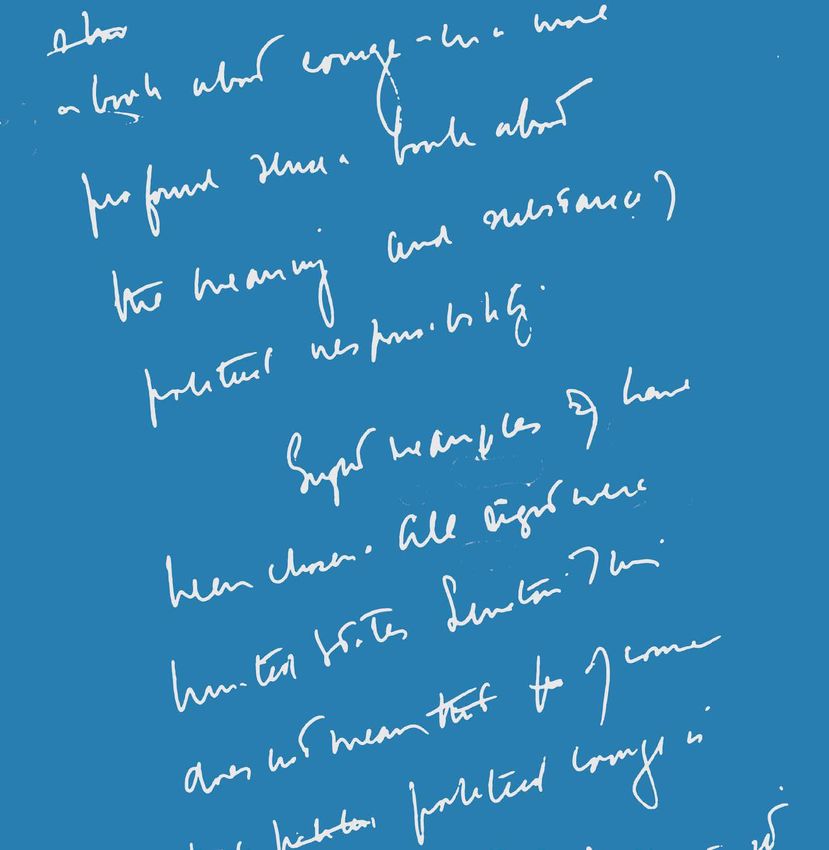 a book about courage - in a more
profound sense a book about
the meaning and substance of
political responsibility.
Eight examples of have
been chosen. All eight were
United States Senators. This
does not mean that of course
political courage is